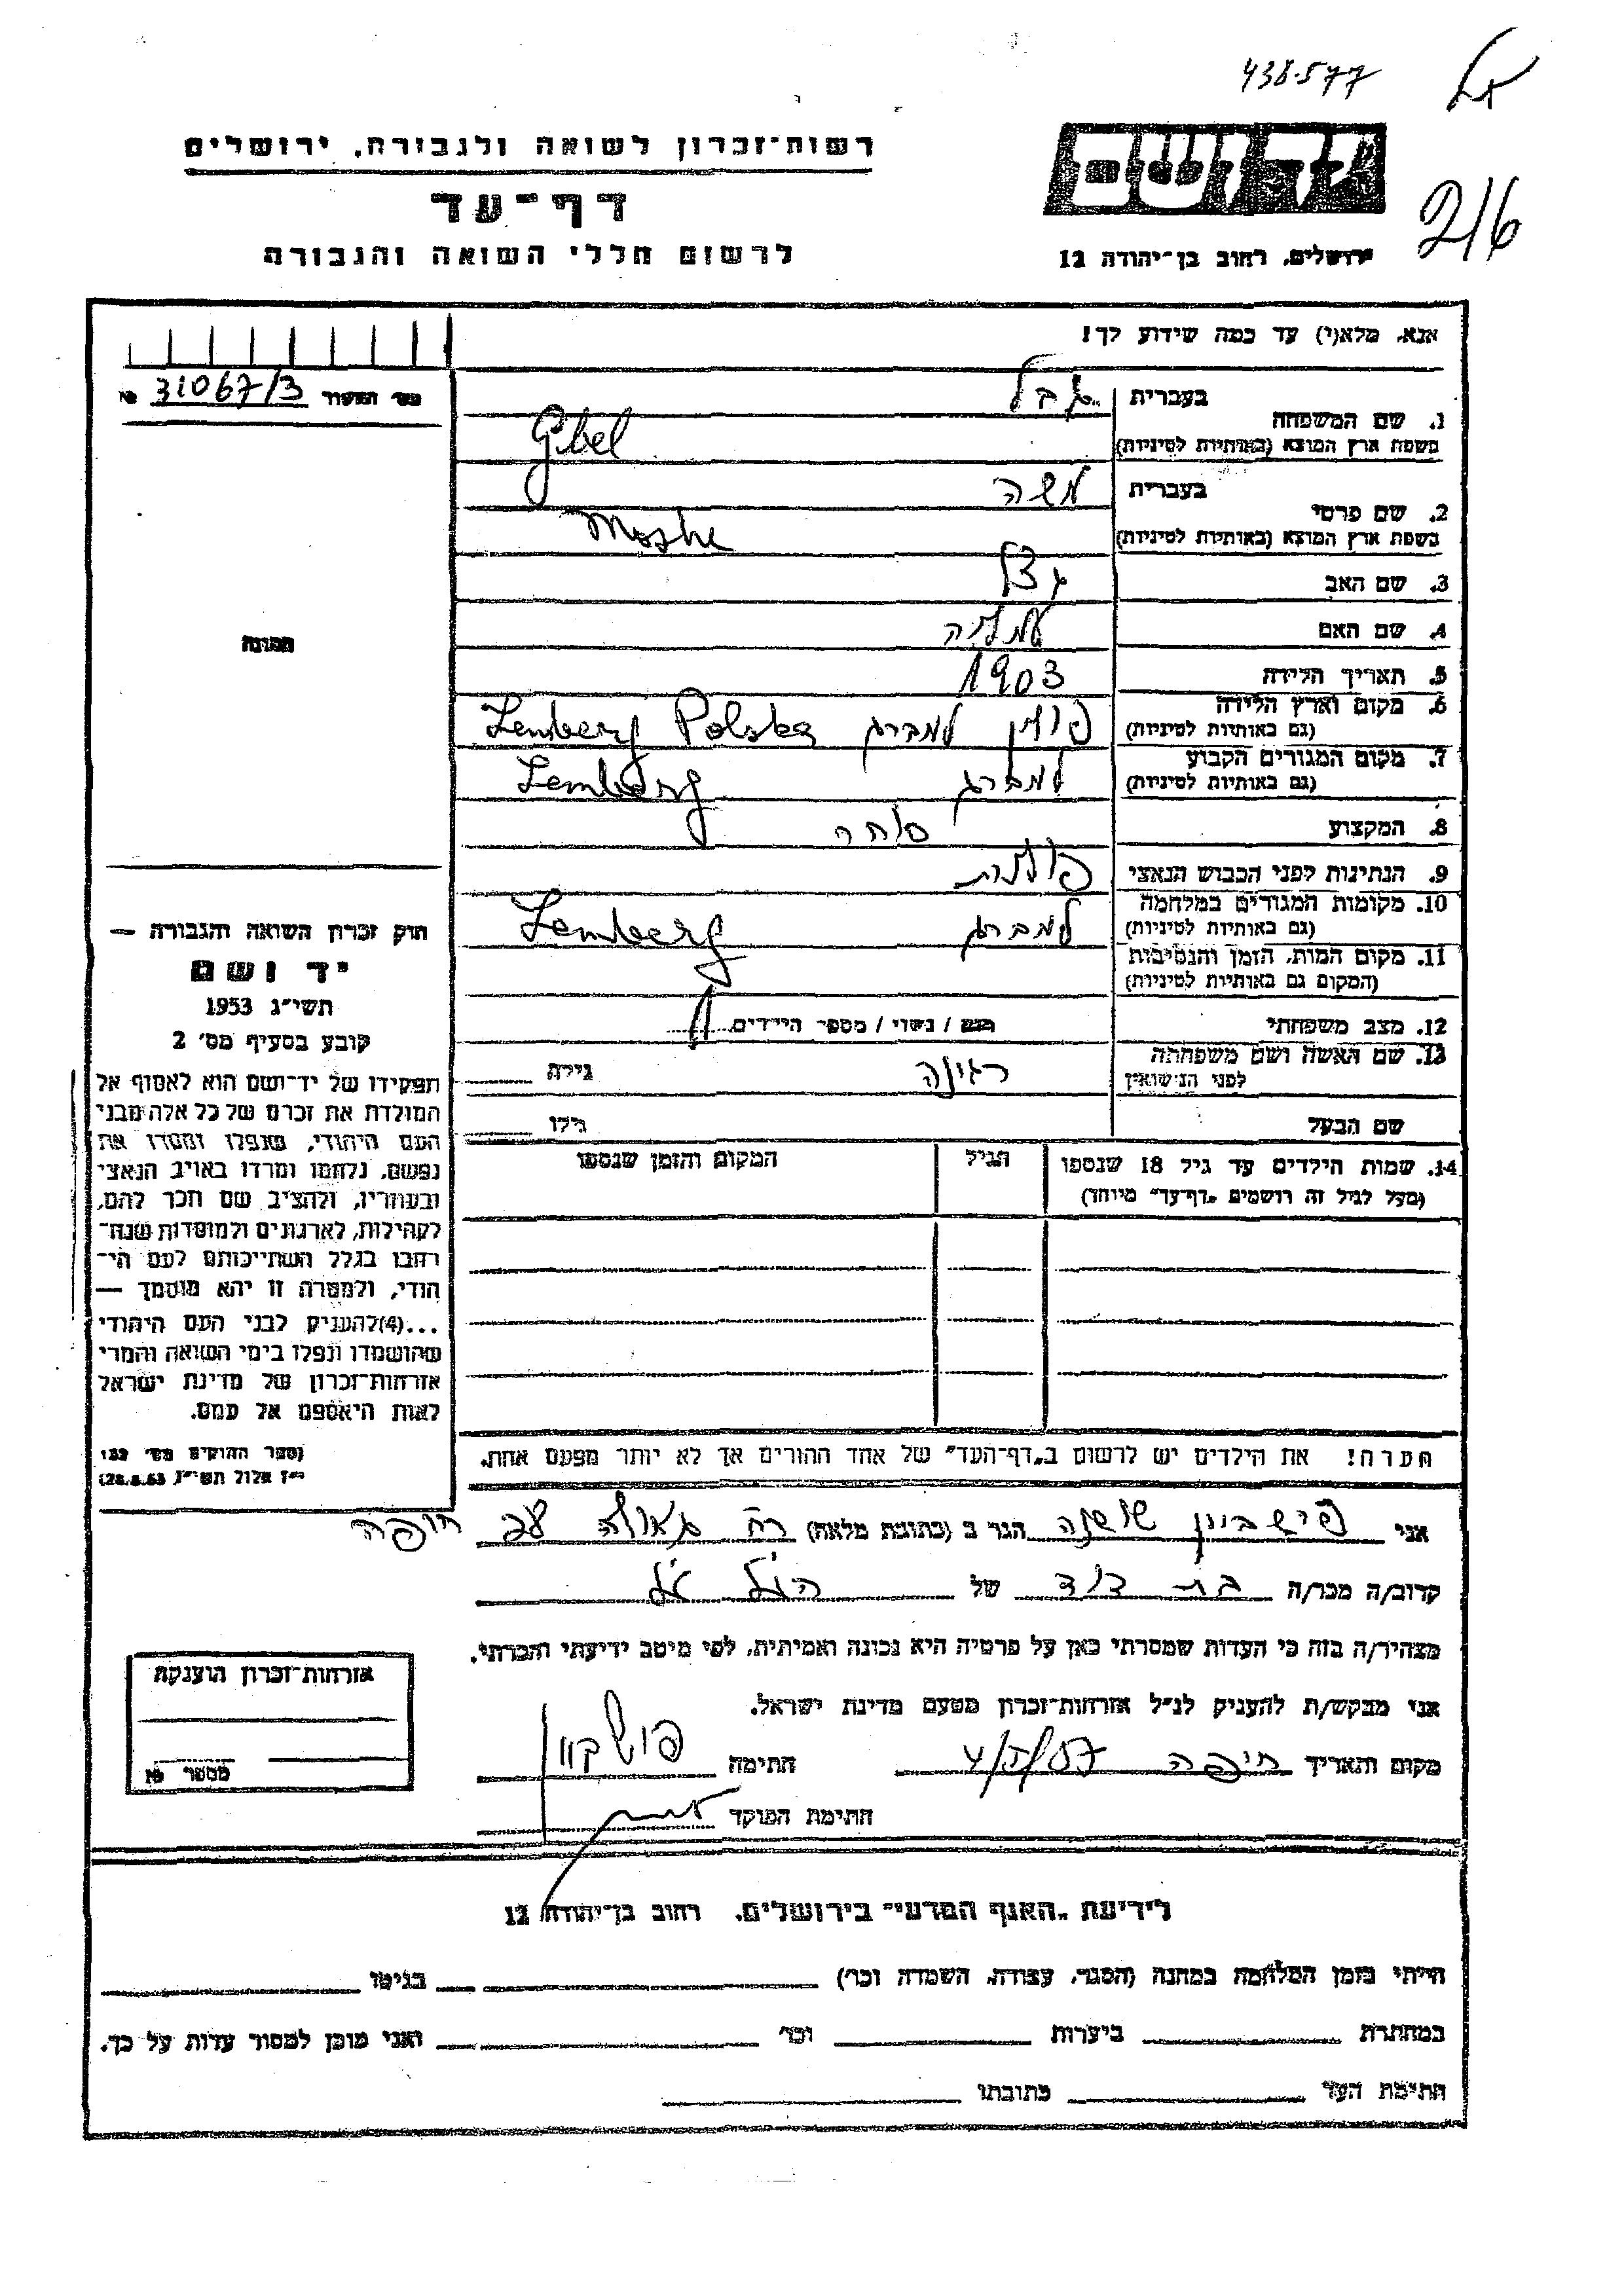 438.577
רשות־זכרון לשואה ולגבורה, ירושלים
יד ושם
216
דף־עד
לרשום חללי השואה והגבורה
ירושלים, רחוב בן־יהודה 12
אנא, מלא(י) עד כמה שידוע לך!
מס' 31067/3 №
1. שם המשפחה בעברית גבל
בשפת ארץ המוצא (באותיות לטיניות) Gibel
2. שם פרטי בעברית משה
בשפת ארץ המוצא (באותיות לטיניות) Moshe
3. שם האב
4. שם האם
תמונה
5. תאריך הלידה 1903
6. מקום וארץ הלידה (גם באותיות לטיניות) פולין למברג Lemberg Polska
7. מקום המגורים הקבוע (גם באותיות לטיניות) למברג Lemberg
8. המקצוע סוחר
9. הנתינות לפני הכבוש הנאצי פולנית
10. מקומות המגורים במלחמה (גם באותיות לטיניות) למברג Lemberg
11. מקום המות, הזמן והנסיבות (המקום גם באותיות לטיניות)
12. מצב משפחתי רווק / נשוי / מספר הילדים
13. שם האשה ושם משפחתה לפני הנישואין רגינה גילה
שם הבעל גילו
14. שמות הילדים עד גיל 18 שנספו הגיל המקום והזמן שנספו
(מעל לגיל זה רושמים „דף־עד” מיוחד)
חוק זכרון השואה והגבורה —
יד ושם
תשי"ג 1953
קובע בסעיף מס' 2
תפקידו של יד־ושם הוא לאסוף אל
המולדת את זכרם של כל אלה מבני
העם היהודי, שנפלו ומסרו את
נפשם, נלחמו ומרדו באויב הנאצי
ובעוזריו, ולהציב שם וזכר להם,
לקהילות, לארגונים ולמוסדות שנח־
רבו בגלל השתייכותם לעם הי־
הודי, ולמטרה זו יהא מוסמך —
...(4)להעניק לבני העם היהודי
שהושמדו ונפלו בימי השואה והמרי
אזרחות־זכרון של מדינת ישראל
לאות היאספם אל עמם.
(ספר החוקים מס' 132
י"ז אלול תשי"ג 28.8.53)
הערה! את הילדים יש לרשום ב„דף־העד” של אחד ההורים אך לא יותר מפעם אחת.
אני שושנה הגר ב (כתובת מלאה) רח גאולה חיפה
קרוב/ה מכר/ה בת דוד של הנ"ל
מצהיר/ה בזה כי העדות שמסרתי כאן על פרטיה היא נכונה ואמיתית, לפי מיטב ידיעתי והכרתי.
אני מבקש/ת להעניק לנ"ל אזרחות־זכרון מטעם מדינת ישראל.
מקום ותאריך חיפה חתימה
חתימת הפוקד
אזרחות־זכרון הוענקה
מספר №
לידיעת „האגף המדעי” בירושלים, רחוב בן־יהודה 12
הייתי בזמן המלחמה במחנה (הסגר, עבודה, השמדה וכו') בגיטו
במחתרת ביערות וכו' ואני מוכן למסור עדות על כך.
חתימת העד כתובתו